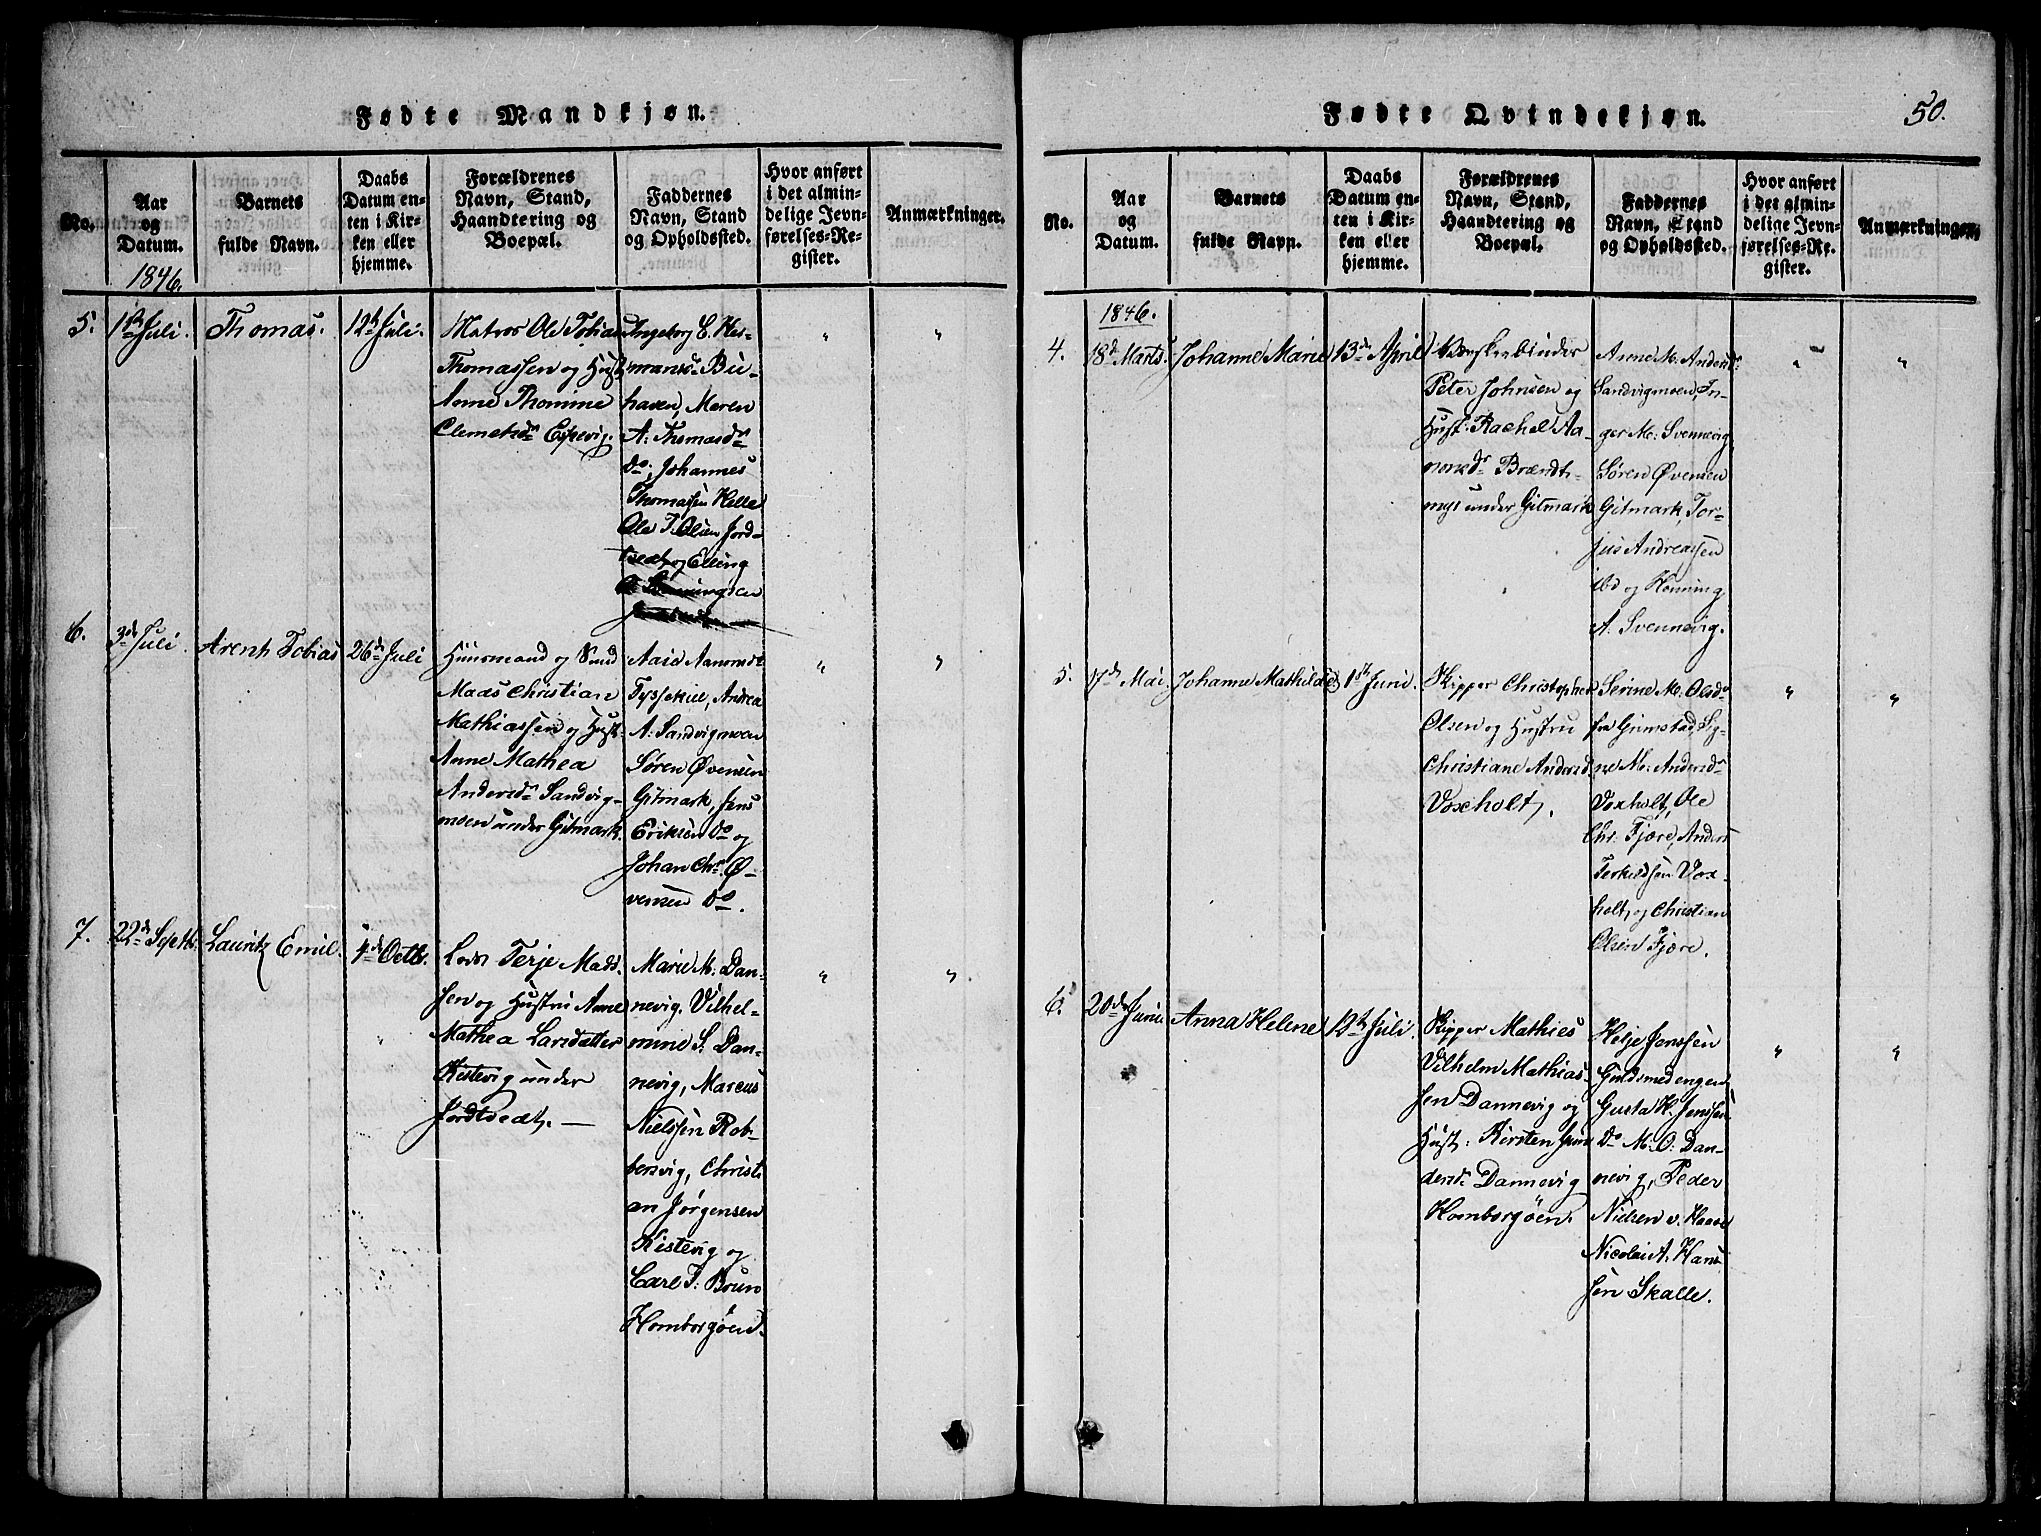 Fødte Mandkjøn.
No.
Aar
og
Datum.
1846.
Barnets
fulde Navn.
Daabs
Datum en-
ten i Kir-
ken eller
hjemme.
Forældrenes
Navn, Stand,
Haandtering og
Boepæl.
Faddernes
Navn, Stand
og Opholdsted.
Hvor anført
i det almin-
delige Jevn-
førelses-Re-
gister.
Anmærkninger.
5.
1ste Juli.
Thomas.
12te Juli.
Matros Ole Tobias
Thomassen og Hust.
Anne Thomine
Clemetsdr Espevig.
Ingeborg E. Her-
mansdr Bu-
haven, Maren
A. Thomasdr
do, Johannes
Thomassen Helle
Ole T. Olsen Jord-
tvedt, og Elling
6.
3die Juli
Arent Tobias
26de Juli
Huusmand og Smed
Mads Christian
Mathiassen og Hust.
Anne Mathea
Andersdr Sandvig-
moen under Gitmark.
Aase Aanonsdr
Tyssekiil, Andrea
A. Sandvigmoen
Søren Øvensen
Gitmark, Jens
Eriksen do og
Johan Chr. Ø-
vensen do.
7.
22de Septb.
Lauritz Emil.
4de Octb.
Lods Terje Mads-
sen og Hustru Anne
Mathea Larsdatter
Kistevig under
Jordtvedt. —
Marie M. Dan-
nevig. Vilhel-
mine S. Dan-
nevig, Marcus
Nielssen Rob-
bersvig, Christi-
an Jørgensen
Kistevig og
Carl T. Bruun
Homborgøen.
Fødte Qvindekjøn.
50.
No.
Aar
og
Datum.
Barnets
fulde Navn.
Daabs
Datum en-
ten i Kir-
ken eller
hjemme.
Forældrenes
Navn, Stand,
Haandtering og
Boepæl.
Faddernes
Navn, Stand
og Opholdsted.
Hvor anført
i det almin-
delige Jevn-
førelses-Re-
gister.
Anmærkninger.
1846.
4.
18de Marts.
Johanne Marie
13de April
Peter Johnsen og
Hust. Rachel Aa-
nonsdr Brændt-
under Gitmark
Anne M. Andersdr
Sandvigmoen, In-
ger M. Svennevig
Søren Øvensen
Gitmark, Tor-
jus Andreassen
ibd og Henning
A. Svennevig.
5.
17de Mai.
Johanne Mathilde
1ste Juni.
Skipper Christopher
Olsen og Hustru
Christiane Andersd
Voxholt.
Serine M. Olsdr
fra Grimstad, Sig-
ne M. Andersdr
Voxholt, Ole
Chr. Fjære, Anders
Terkildsen Vox-
holt, og Christian
Olsen Fjære.
6.
20de Juni
Anna Helene
12te Juli.
Skipper Mathies
Vilhelm Mathias-
sen Dannevig og
Hust. Kirsten Gun-
dersdr Dannevig
Homborgøen.
Helje Jenssen
Guldsmedengen
Gusta H. Jenssen
do M. O. Dan-
nevig, Peder
Nielsen v. Haave
Nicolai A. Hans-
sen Skalle.